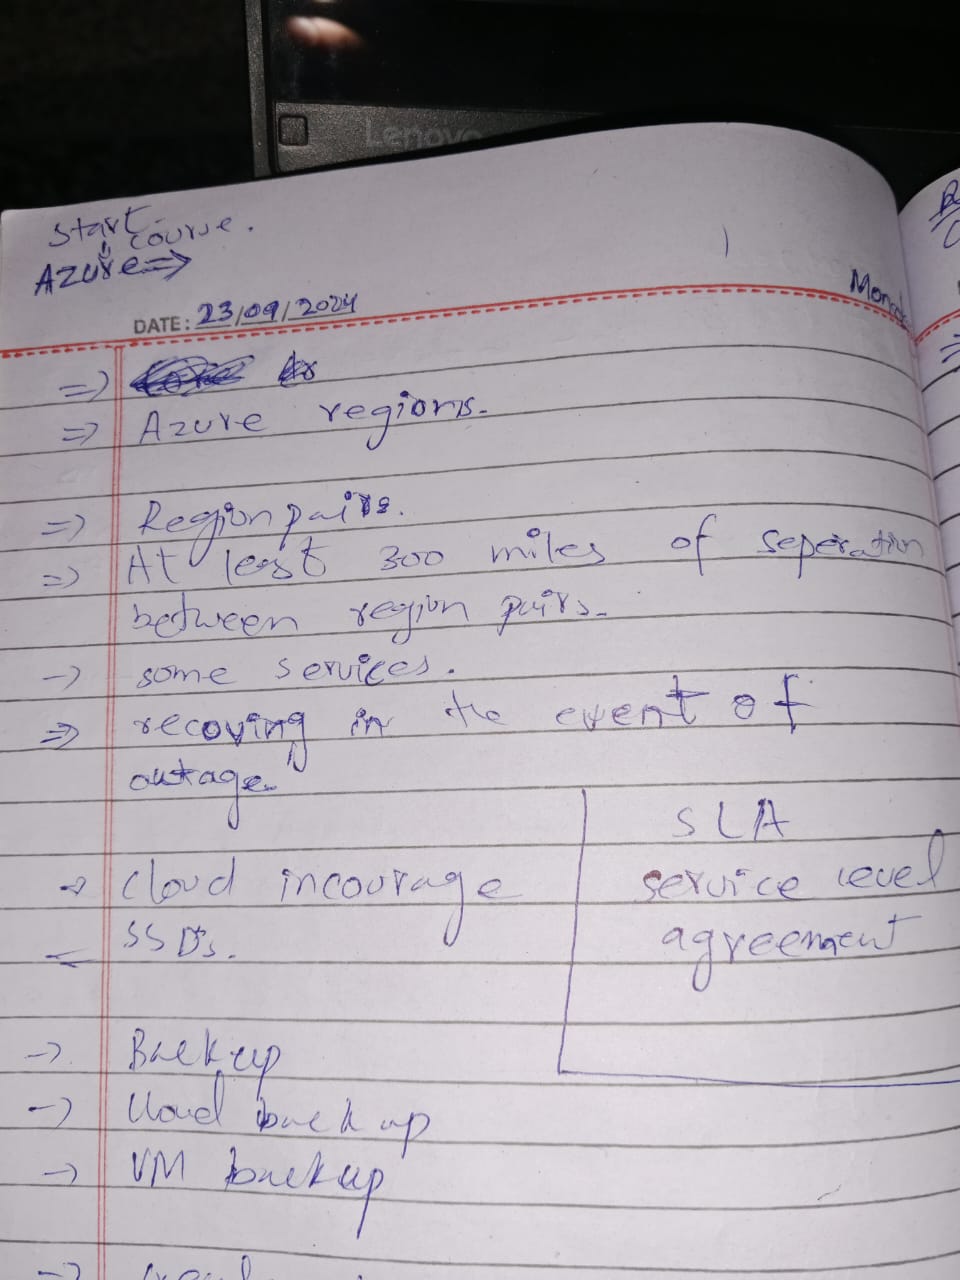 Lenovo
start
course.
Azure⇒
DATE: 23/09/2024
⇒ Azure regions.
⇒ Region pairs.
⇒ At least 300 miles of seperation
between region pairs.
→ some services.
⇒ recoving in the event of
outage.
SLA
service level
agreement
→ cloud incourage
SSD's.
→ Backup
→ cloud backup
→ VM backup